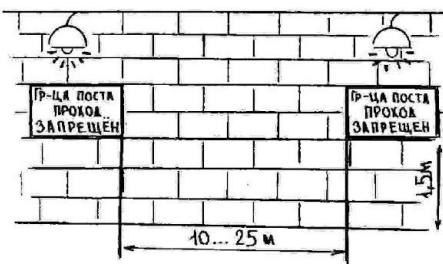 ГР-ЦА ПОСТА
ПРОХОД
ЗАПРЕЩЁН
ГР-ЦА ПОСТА
ПРОХОД
ЗАПРЕЩЁН
1,5м
10... 25 м